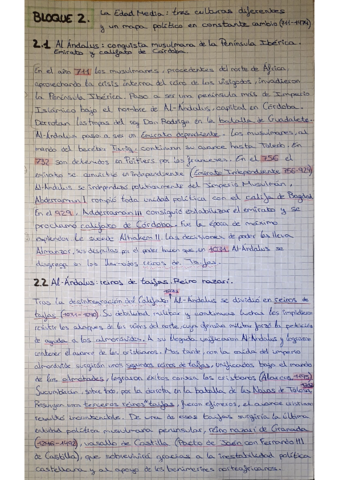 BLOQUE 2. La Edad Media: tres culturas diferentes
y un mapa político en constante cambio (711-1474)
2.1 Al Ándalus: conquista musulmana de la Península Ibérica.
Emirato y califato de Córdoba.
En el año 711 los musulmanes, procedentes del norte de África,
aprovechando la crisis interna del reino de los visigodos, invadieron
la Península Ibérica. Pasó a ser una península más de Imperio
Islámico bajo el nombre de Al-Ándalus, capital en Córdoba.
Derrotan las tropas del rey Don Rodrigo en la batalla de Guadalete.
Al-Ándalus pasó a ser un Emirato dependiente. Los musulmanes, al
mando del bereber Tariq, continuaron su avance hasta Toledo. En
732 son detenidos en Poitiers por los franceses. En el 756 el
emirato se convirtió en independiente (Emirato Independiente 756-929)
Al-Ándalus se independizó políticamente del Imperio Musulmán,
Abderraman I rompió toda unidad política con el califa de Bagdad
En el 929, Abderraman III consiguió estabilizar el emirato y se
proclamó califato de Córdoba. Fue la época de máximo
esplendor. Le sucede Alhakem II. Las decisiones de poder las lleva
Almanzor, los disputas por el poder hacen que en 1031 Al-Ándalus se
disgregó en los llamados reinos de Taifas.
2.2 Al-Ándalus: reinos de taifas. Reino nazarí.
Tras la desintegración del Califato, Al-Ándalus se dividió en reinos de
taifas Su debilidad militar y continuas luchas les impidieron
resistir los ataques de los reinos del norte, cuya presión militar forzó la petición
de ayuda a los almorávides. A su llegada unificaron Al-Ándalus y lograron
contener el avance de los cristianos. Mas tarde, con la caída del imperio
almorávide surgirán unos segundos reinos de taifas, unificados bajo el mando
de los almohades, lograron éxitos contra los cristianos (Alarcos, 1195)
Sucumbieron tras la derrota en la batalla de las Navas de Tolosa.
Resurgieron terceros reinos taifas, pero efímeros, el avance cristiano
resultó incontestable. De una de esas taifas surgiría la última
entidad política musulmana peninsular, reino nazarí de Granada
vasallo de Castilla (Pacto de Jaén con Fernando III
de Castilla), que sobrevivirá gracias a la inestabilidad política
castellana y al apoyo de los benimerines norteafricanos.